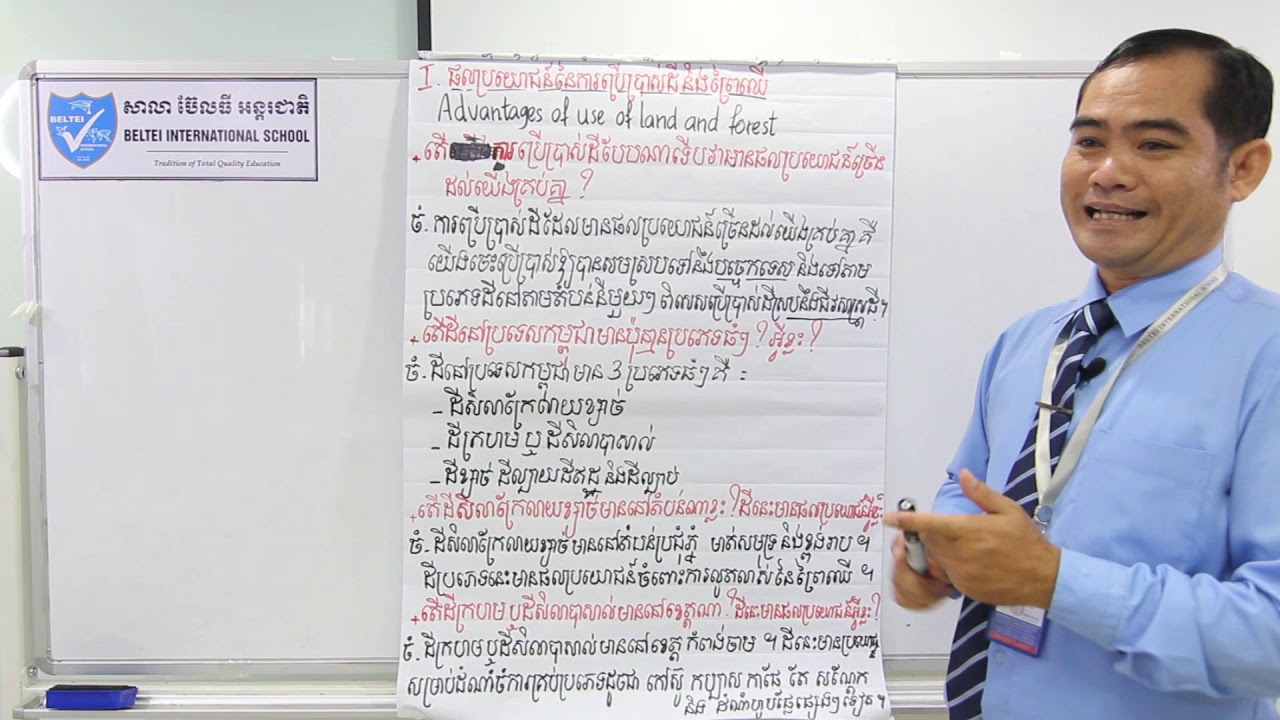 សាលា ប៊ែលធី អន្តរជាតិ
BELTEI INTERNATIONAL SCHOOL
Tradition of Total Quality Education
BELTEI
I. ផលប្រយោជន៍នៃការប្រើប្រាស់ដី និងព្រៃឈើ
Advantages of use of land and forest
+ តើ ការ ប្រើប្រាស់ដីបែបណាទើបវាមានផលប្រយោជន៍ច្រើន
ដល់យើងគ្រប់គ្នា ?
ចំ. ការប្រើប្រាស់ដីដែលមានផលប្រយោជន៍ច្រើនដល់យើងគ្រប់គ្នា គឺ
យើងចេះប្រើប្រាស់ឱ្យបានសមស្របទៅនឹងបច្ចេកទេស និងទៅតាម
ប្រភេទដីនៅតាមតំបន់នីមួយៗ ពិសេសប្រើប្រាស់ដីស្របនឹងជីវសាស្ត្រដី។
+ តើដីនៅប្រទេសកម្ពុជាមានប៉ុន្មានប្រភេទធំៗ ? អ្វីខ្លះ ?
ចំ. ដីនៅប្រទេសកម្ពុជាមាន 3 ប្រភេទធំៗ គឺ :
- ដីសិលាក្រែលាយខ្សាច់
- ដីក្រហម ឬ ដីសិលាបាសាល់
- ដីខ្សាច់ ដីល្បាយដីឥដ្ឋ និងដីល្បាប់
+ តើដីសិលាក្រែលាយខ្សាច់មាននៅតំបន់ណាខ្លះ ? ដីនេះមានផលប្រយោជន៍អ្វីខ្លះ
ចំ. ដីសិលាក្រែលាយខ្សាច់មាននៅតំបន់ប្រជុំភ្នំ មាត់សមុទ្រ និងខ្ពង់រាប ។
ដីប្រភេទនេះមានផលប្រយោជន៍ចំពោះការលូតលាស់នៃព្រៃឈើ ។
+ តើដីក្រហម ឬដីសិលាបាសាល់មាននៅខេត្តណា ? ដីនេះមានផលប្រយោជន៍អ្វីខ្លះ ?
ចំ. ដីក្រហម ឬដីសិលាបាសាល់មាននៅខេត្ត កំពង់ចាម ។ ដីនេះមានប្រយោជន៍
សម្រាប់ដំណាំចំការគ្រប់ប្រភេទដូចជា កៅស៊ូ កប្បាស កាហ្វេ តែ សណ្ដែក
និង ដំណាំហូបផ្លែផ្សេងៗ ទៀត ។